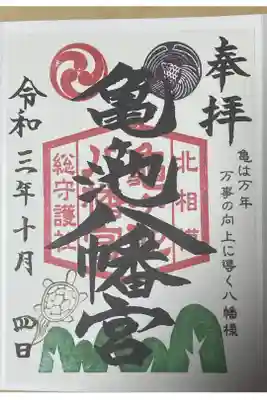 奉拝
亀は万年
万事の向上に導く八幡様
北相模
亀ヶ池八幡宮
総守護社
令和三年十月四日